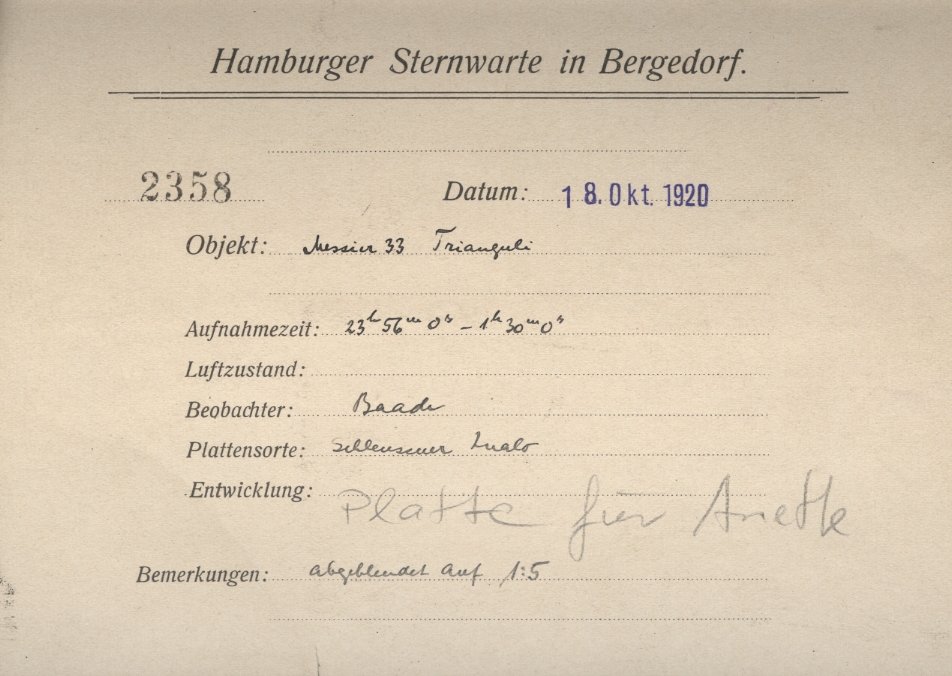 Hamburger Sternwarte in Bergedorf.
2358 Datum: 18. Okt. 1920
Objekt: Messier 33 Trianguli
Aufnahmezeit: 23ʰ 56ᵐ 0ˢ – 1ʰ 30ᵐ 0ˢ
Luftzustand:
Beobachter: Baade
Plattensorte:
Entwicklung: Platte für
Bemerkungen: abgeblendet auf 1:5